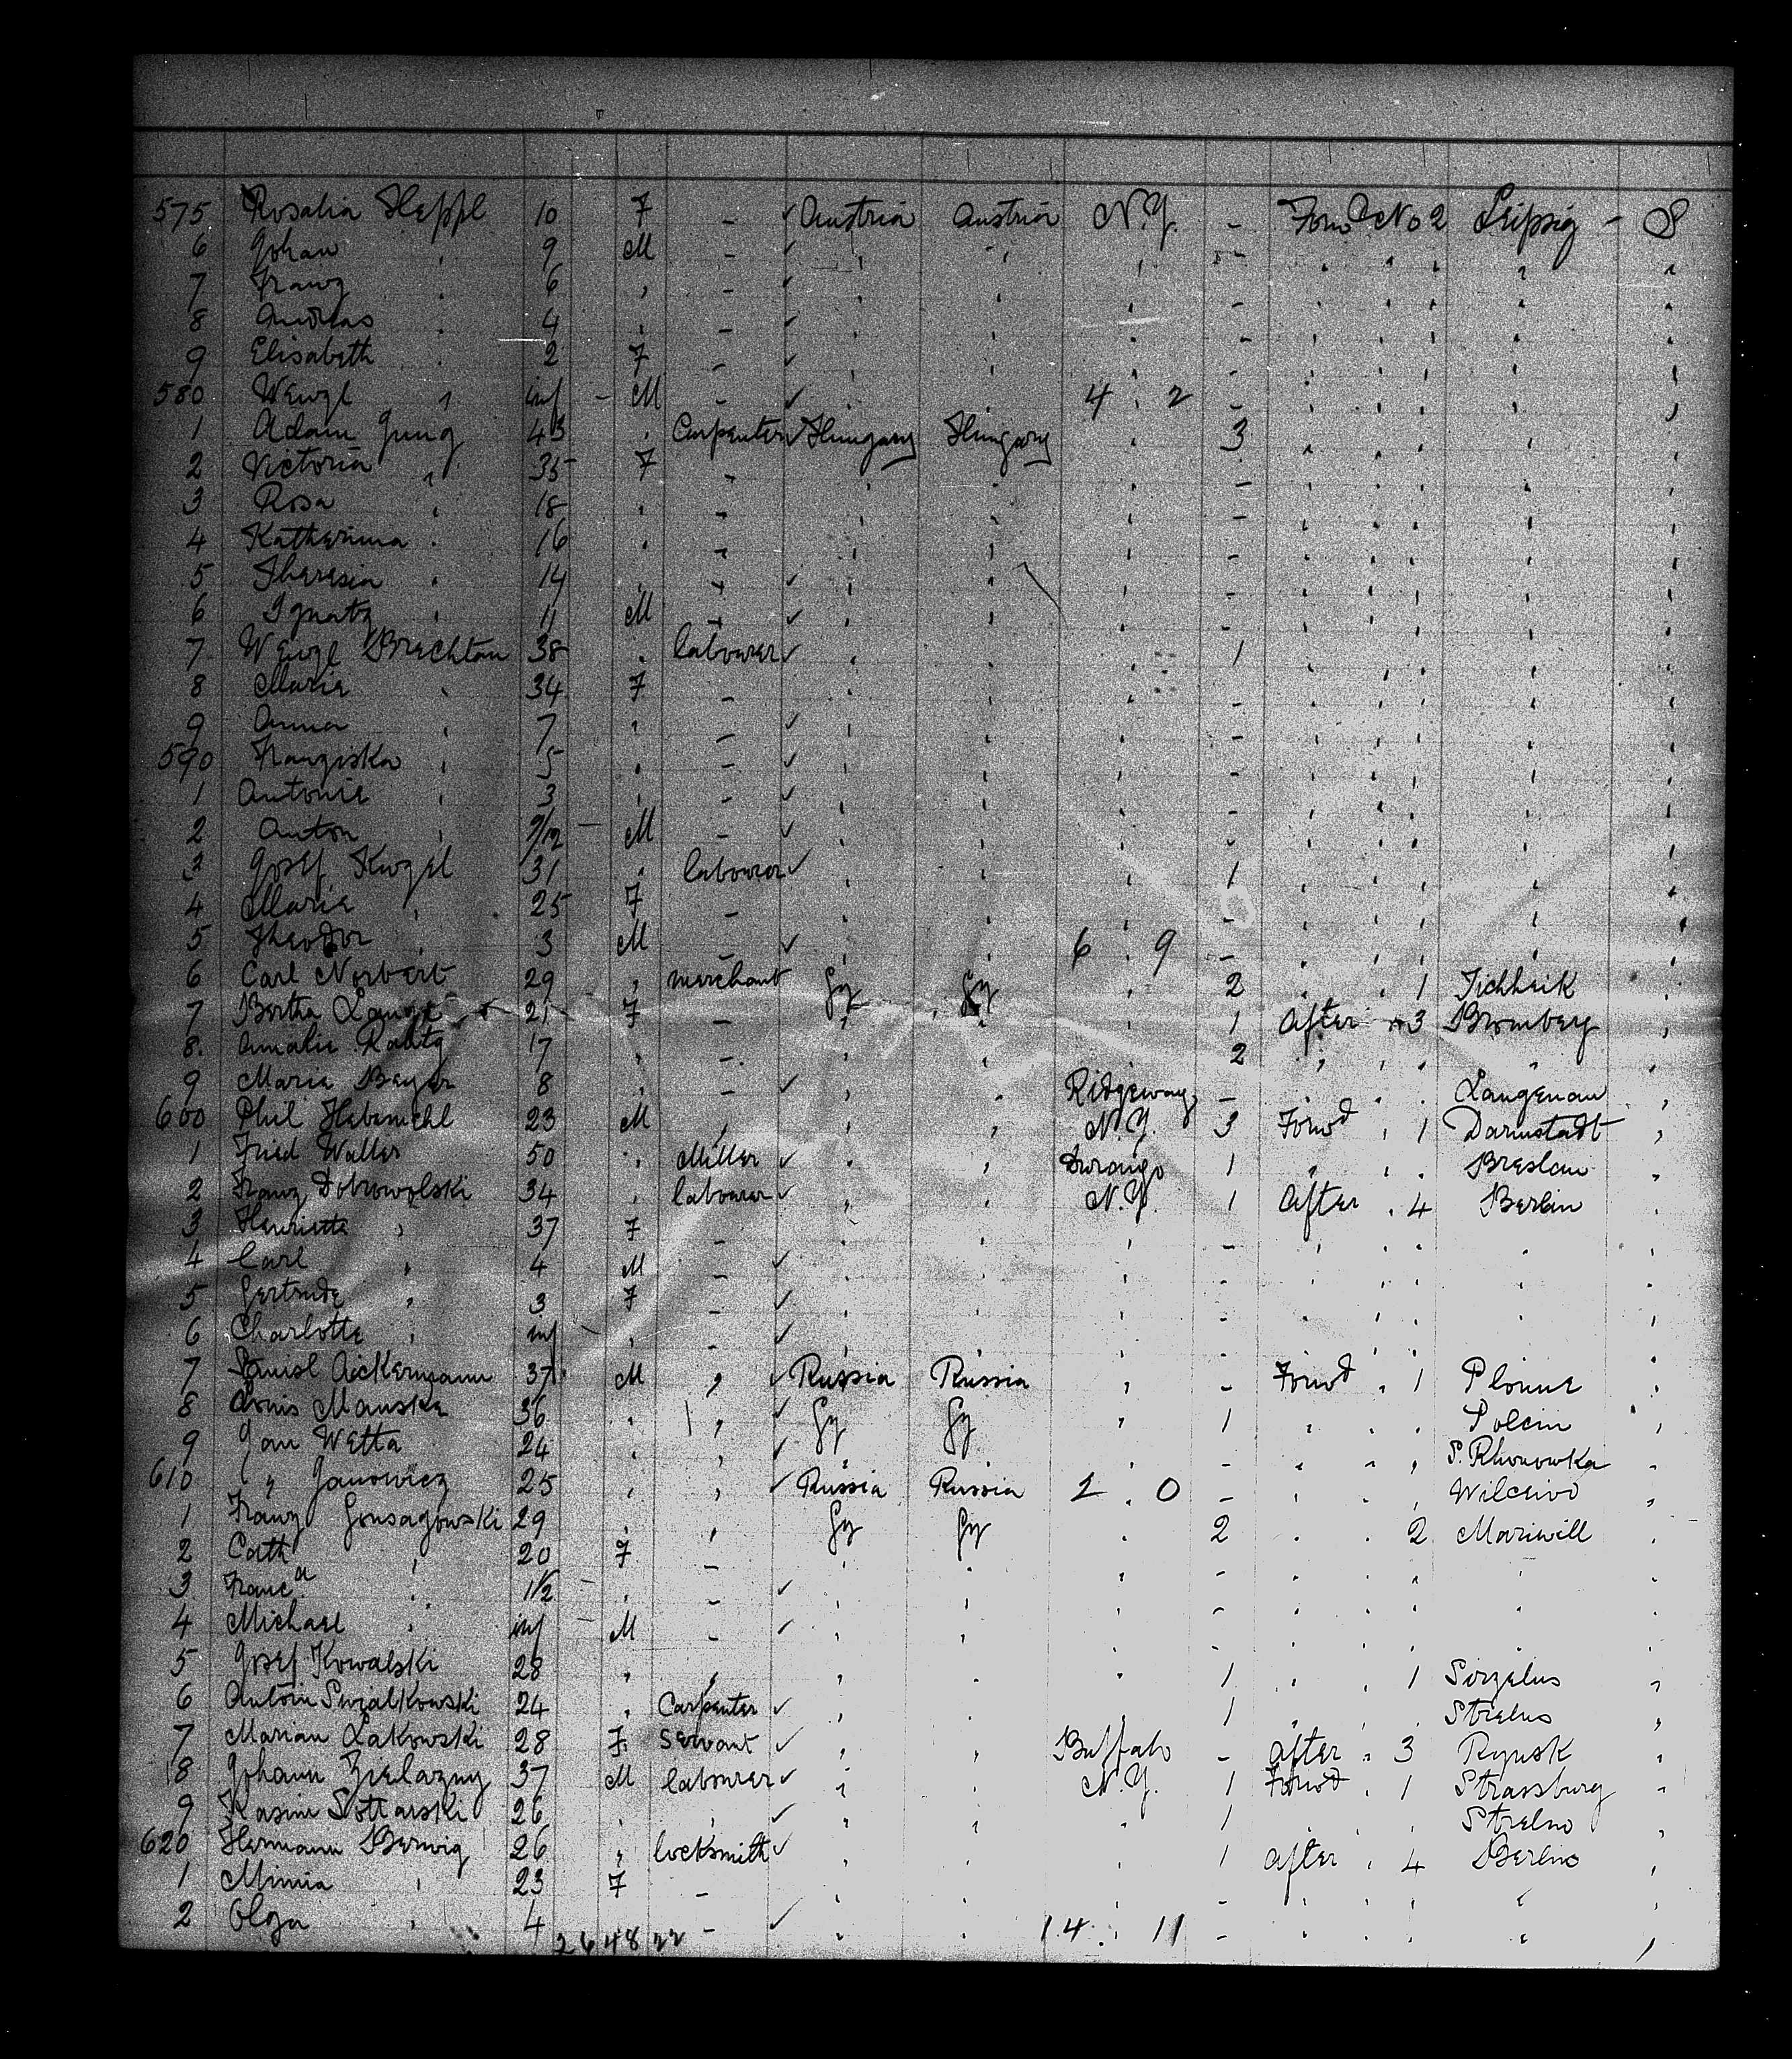 575 Rosalia Heppl 10 F - ✓ Austria Austria N.Y. - Forwd No 2 Leipzig - S
6 Johan " 9 M - ✓ " " " - " " " " "
7 Franz " 6 " - ✓ " " " - " " " " "
8 Andreas " 4 " - ✓ " " " - " " " " "
9 Elisabeth " 2 F - ✓ " " " - " " " " "
580 Wenzl " inf - M - ✓ " " 4 . 2 - " " " " "
1 Adam Jung 43 " Carpenter ✓ Hungary Hungary " 3 " " " " "
2 Victoria " 35 F - " " " - " " " " "
3 Rosa " 18 " " " " " - " " " " "
4 Katherina " 16 " " " " " - " " " " "
5 Theresia " 14 " " ✓ " " " - " " " " "
6 Ignatz " 11 M - ✓ " " " - " " " " "
7 Wenzl Brechtan 38 " labourer ✓ " " " 1 " " " " "
8 Maria " 34 F - " " " - " " " " "
9 Anna " 7 " - ✓ " " " - " " " " "
590 Franziska " 5 " - ✓ " " " - " " " " "
1 Antonie " 3 " - ✓ " " " - " " " " "
2 Anton " 9/12 - M - ✓ " " " - " " " " "
3 Josef Kuzel 31 " labourer ✓ " " " 1 " " " " "
4 Marie " 25 F - " " " - " " " " "
5 Theodor " 3 M - ✓ " " 6 . 9 - " " " " "
6 Carl Norbert 29 " merchant Gy Gy " 2 " " 1 "
7 Bertha Lange 21 F - " " " 1 After " 3 Bromberg "
8 Amalie 17 " - " " " 2 " " " " "
9 Maria Beyer 8 " - ✓ " " Ridgeway - " " " Langenau "
600 Phil 23 M " " " N.Y. 3 Forwd " 1 Darmstadt "
1 Fried Walter 50 " Miller ✓ " " Durango 1 " " " Breslau "
2 Franz Dobrowolski 34 " labourer ✓ " " N.Y. 1 After " 4 Berlin "
3 Henriette " 37 F - " " " - " " " " "
4 Carl " 4 M - ✓ " " " - " " " " "
5 Gertrude " 3 F - ✓ " " " - " " " " "
6 Charlotte " inf - " - ✓ " " " - " " " " "
7 Ackermann 37 M " ✓ Russia Russia " - Forwd " 1 "
8 Manske 36 " " ✓ Gy Gy " 1 " " " Polcin "
9 Jan Wetta 24 " " ✓ " " " - " " " S. Rhonowka "
610 " Janowicz 25 " " ✓ Russia Russia 2 . 0 - " " " "
1 Franz Gonsagowski 29 " " Gy Gy " 2 " " 2 Mariwill "
2 Cath " 20 F - " " " - " " " " "
3 Franca " 1 1/2 - " - ✓ " " " - " " " " "
4 Michael " inf - M - ✓ " " " - " " " " "
5 Josef Kowalski 28 " " " " " 1 " " 1 "
6 Antoin Swialkowski 24 " Carpenter ✓ " " " 1 " " " Strelno "
7 Marian Lakowski 28 F. Servant ✓ " " Buffalo - After " 3 Rynsk "
18 Johann Zielazny 37 M labourer ✓ " " N.Y. 1 Forwd " 1 Strassburg "
9 Kasim 26 " " ✓ " " " 1 " " " Strelno "
620 Hermann Berwig 26 " locksmith ✓ " " " 1 After " 4 Berlin "
1 Minna " 23 F - " " " - " " " " "
2 Olga " 4 " - ✓ " " 14 . 11 - " " " " "
26 48 22